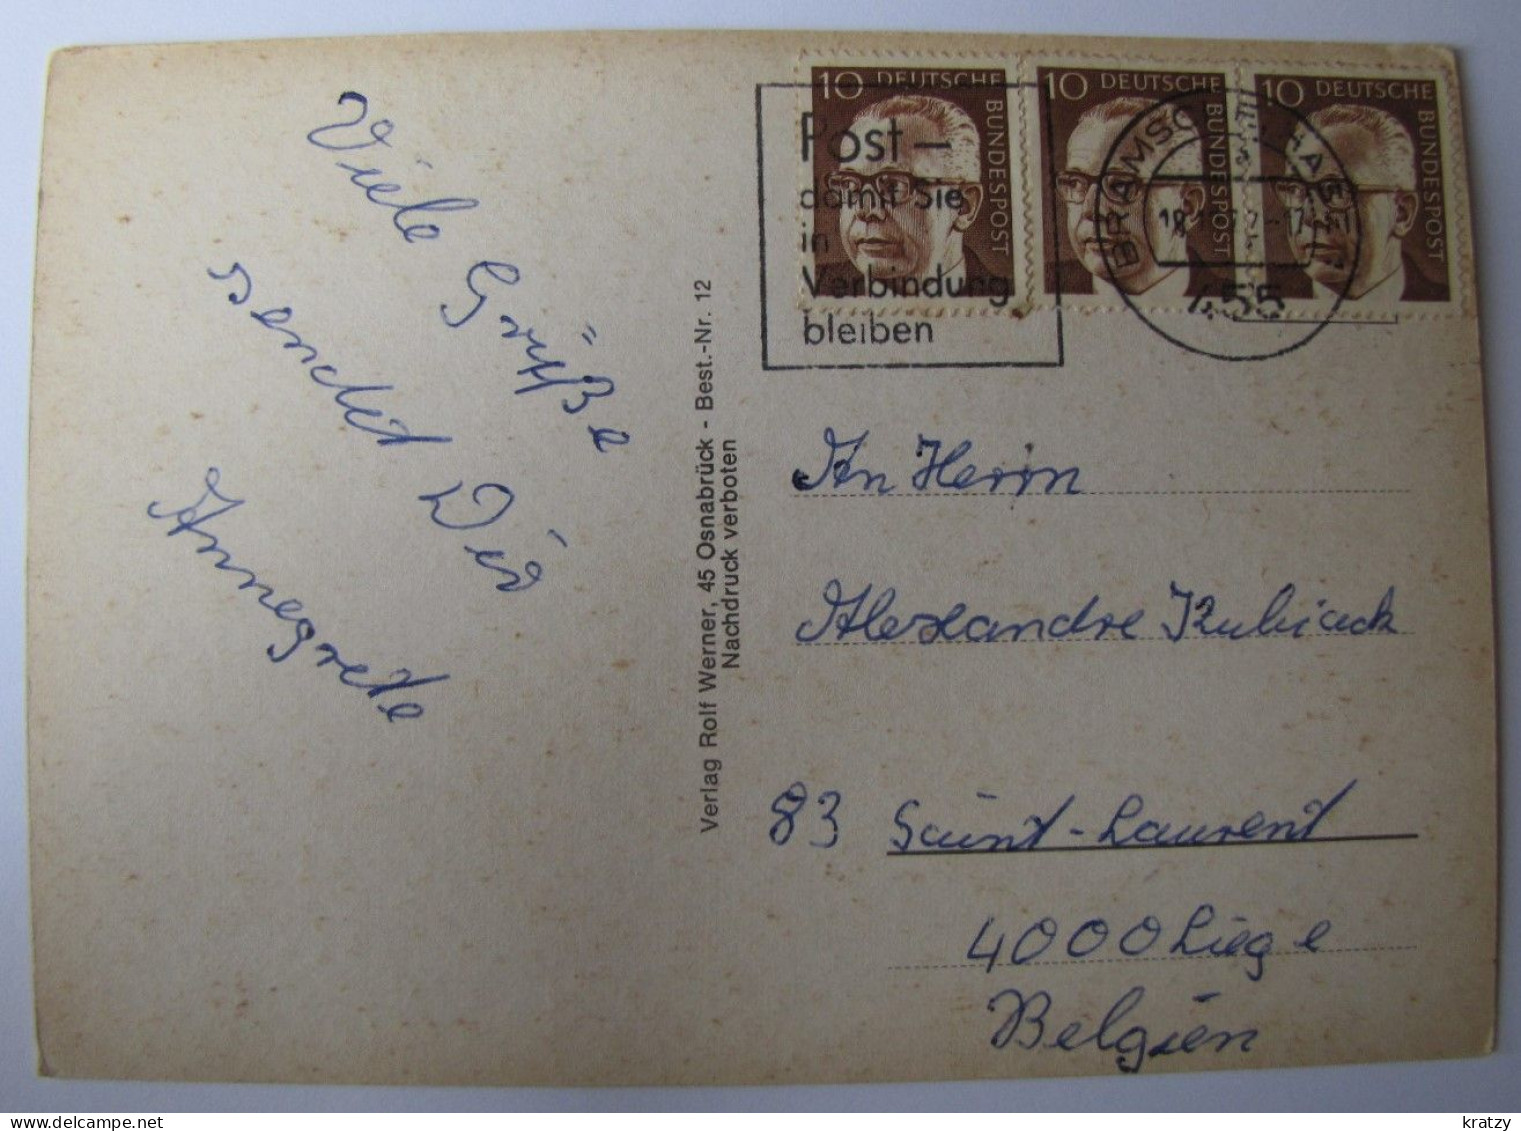 Viele Grüße
sendet Dir
Annegrete
Verlag Rolf Werner, 45 Osnabrück - Best.-Nr. 12
Nachdruck verboten
10 DEUTSCHE BUNDESPOST
10 DEUTSCHE BUNDESPOST
10 DEUTSCHE BUNDESPOST
Post –
damit Sie
in
Verbindung
bleiben
455
An Herrn
Alexandre Kubiack
83 Saint-Laurent
4000 Liege
Belgien
kratzy